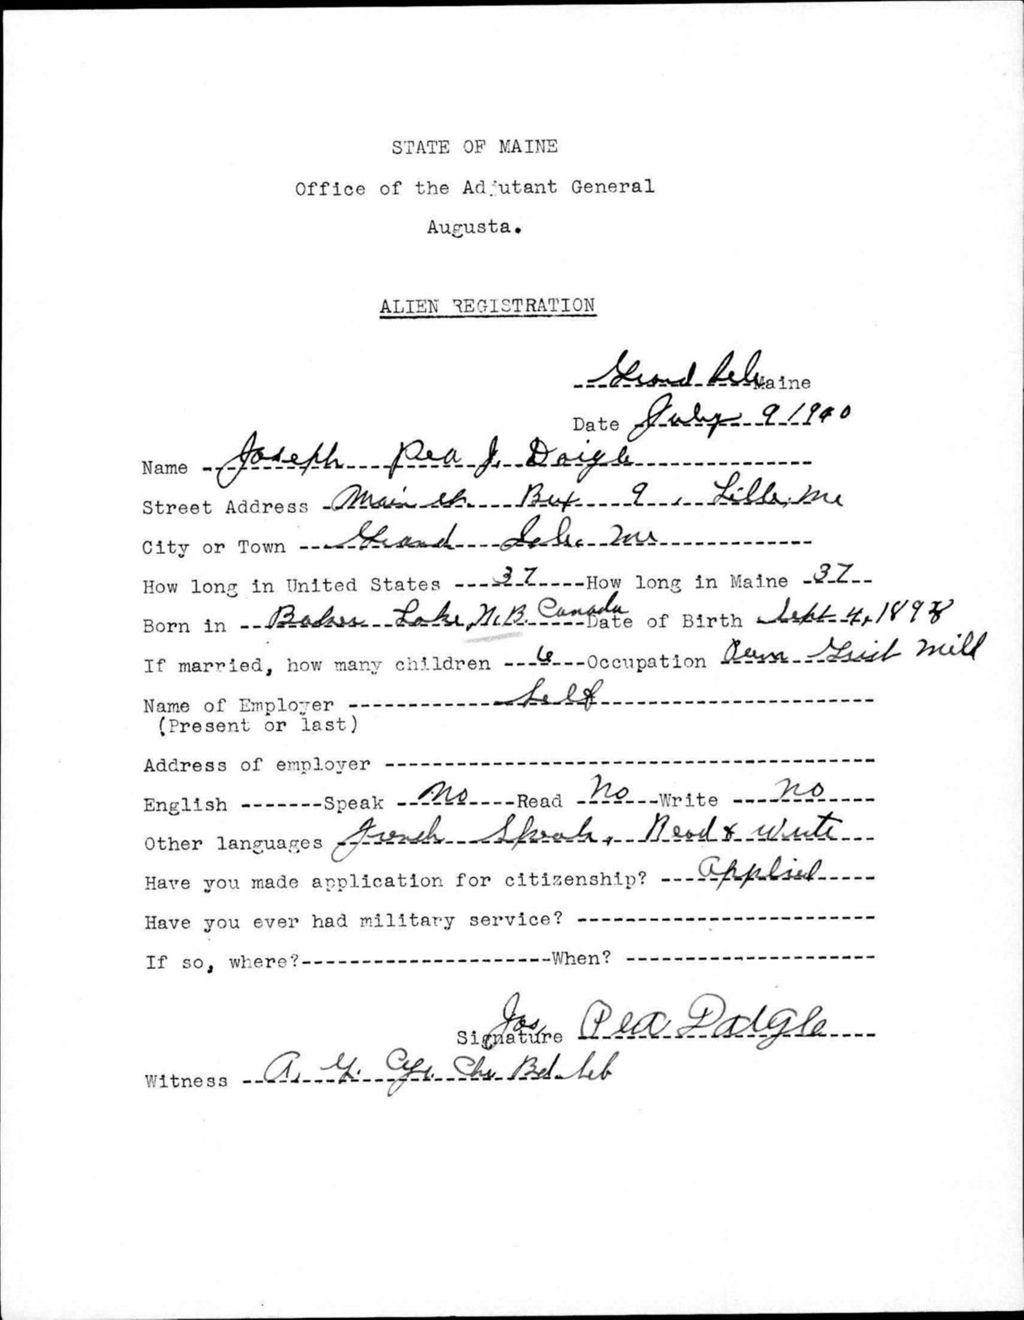 STATE OF MAINE
Office of the Adjutant General
Augusta.
ALIEN REGISTRATION
Grand Isle Maine
Date July 9 1940
Name Joseph Pea J. Daigle
Street Address Main St. Box 9, Lille, Me
City or Town Grand Isle Me
How long in United States 37 How long in Maine 37
Born in Baker Lake, N.B. Canada Date of Birth Sept 4, 1898
If married, how many children 6 Occupation Grist Mill
Name of Employer Self
(Present or last)
Address of employer
English Speak No Read No Write no
Other languages French Speak, Read & Write
Have you made application for citizenship? Applied
Have you ever had military service?
If so, where? When?
Signature Jos Pea Daigle
Witness A.